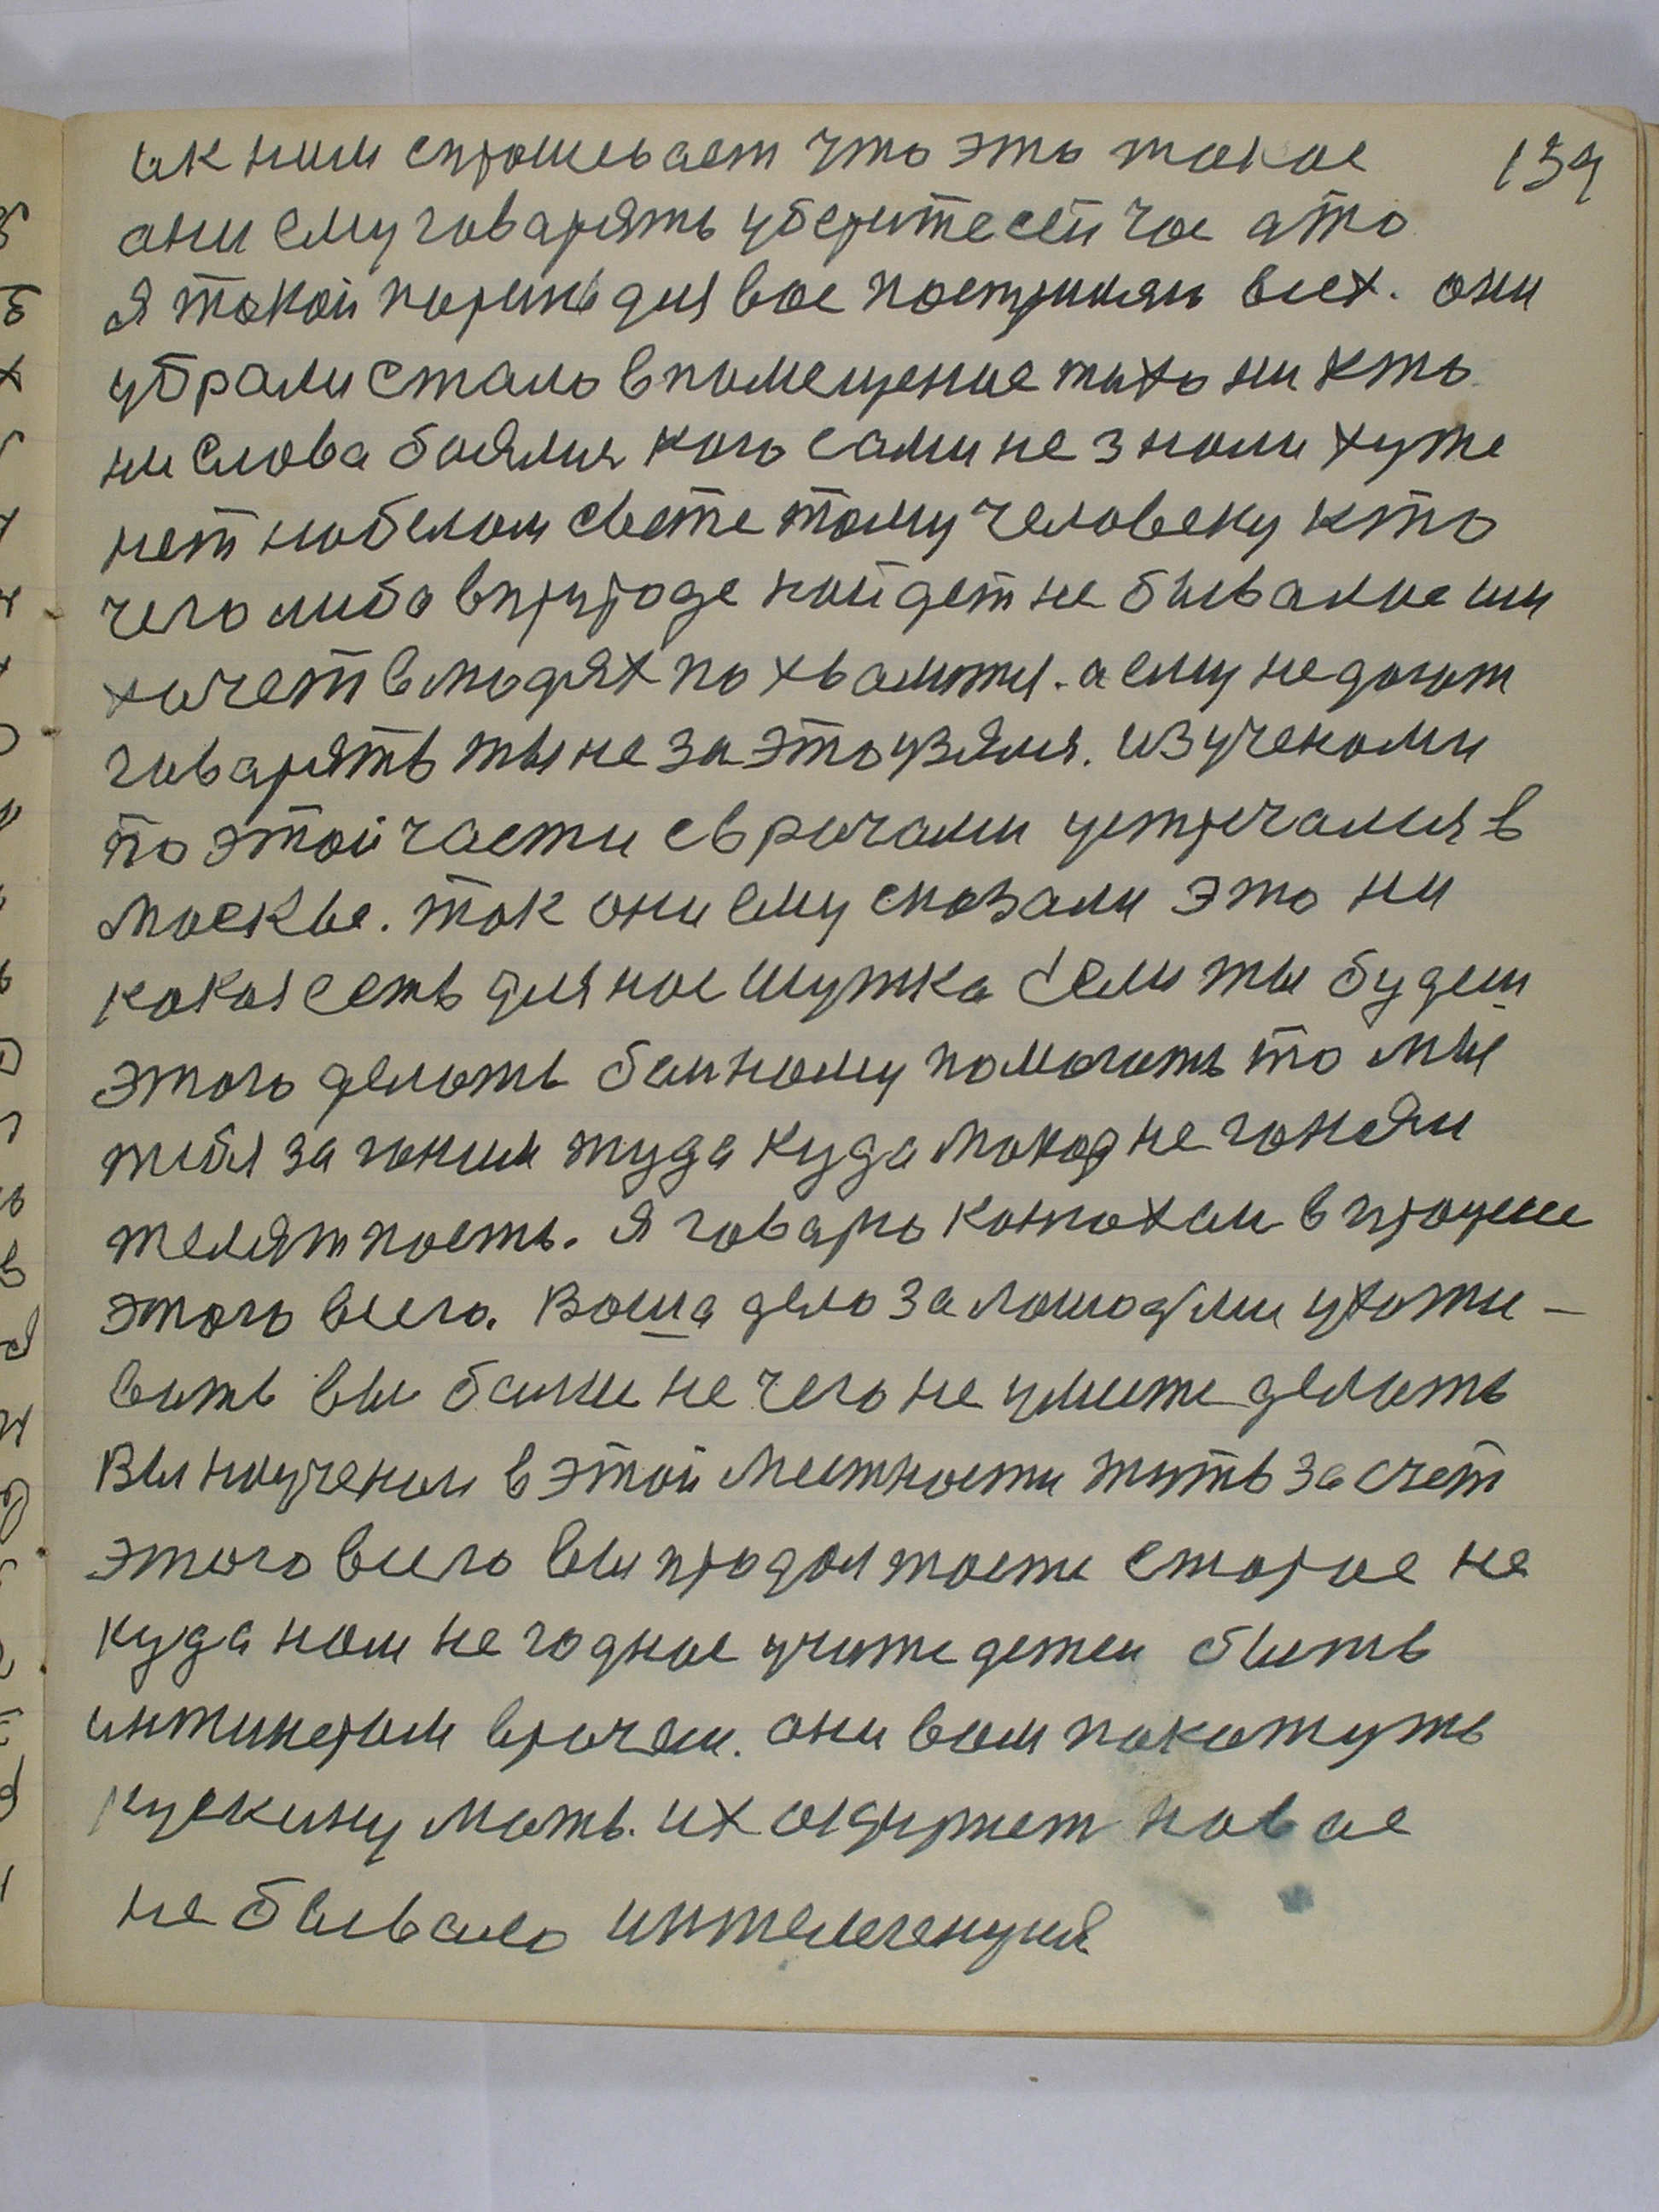 ик ним спрошевает что это такое 139
они ему говарять уберите сей час ато
я такой поринь для вас постриляю всех. они
убрали стало в помещение тихо ни кто
ни слова боялися кого сами не знали хуже
нет на белом свете тому человеку кто
чего либо в природе найдет не бывалое или
хочет в людях похвалится. а ему не дають
говарять ты не за это узялся. из учеными
по этой части с врачами устречалися в
Москве. так они ему сказали это ни
какоя есть для нас шутка Если ты будеш
этого делать больному помогать то мы
тибя загоним туда куда Макар не гонял
телят пасть. Я говарю конюхам в процесе
этого всего. Ваша дело за лошадями ухажи-
вать вы больше не чего не умеете делать
Вы научены в этой местности жить за счет
этого всего вы продолжаете старое не
куда нам не годное учите детей быть
интинерам врачам. они вам покажуть
кускину мать. их одержет новае
не бывало интелегенцыя